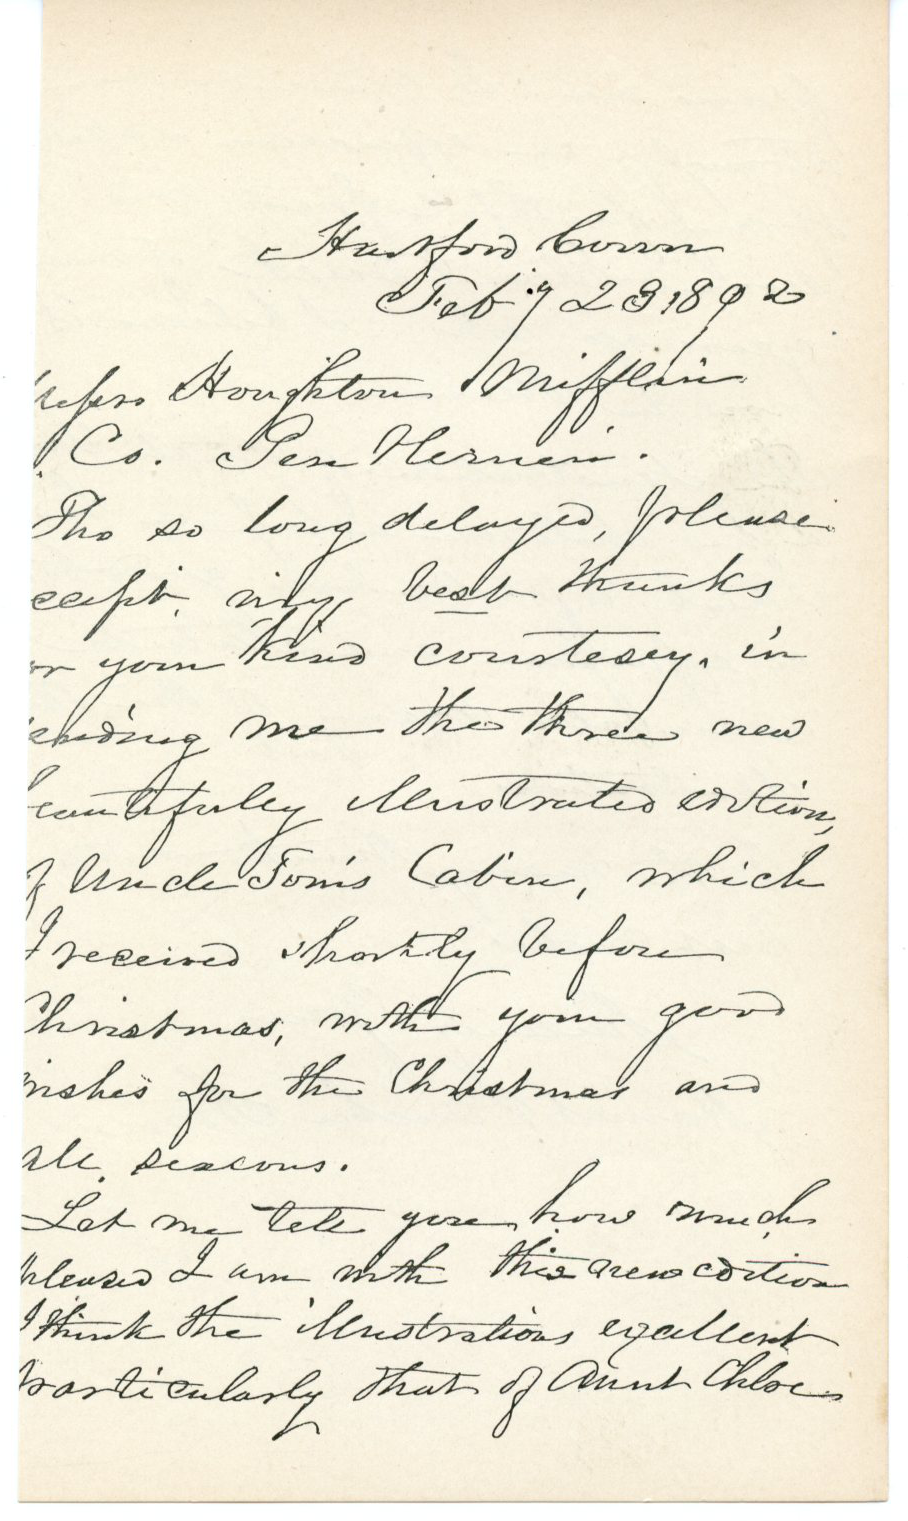 Hartford Conn
Feb'y 23, 1892
Messrs Houghton Mifflin
& Co. Gentlemen.
Tho so long delayed, please
accept, my best thanks
for your kind courtesy, in
sending me the three new
beautifully illustrated edition,
of Uncle Tom's Cabin, which
I received shortly before
Christmas, with your good
wishes for the Christmas and
all, seasons.
Let me tell you how much
pleased I am with this new edition
I think the illustrations excellent
particularly that of Aunt Chloe